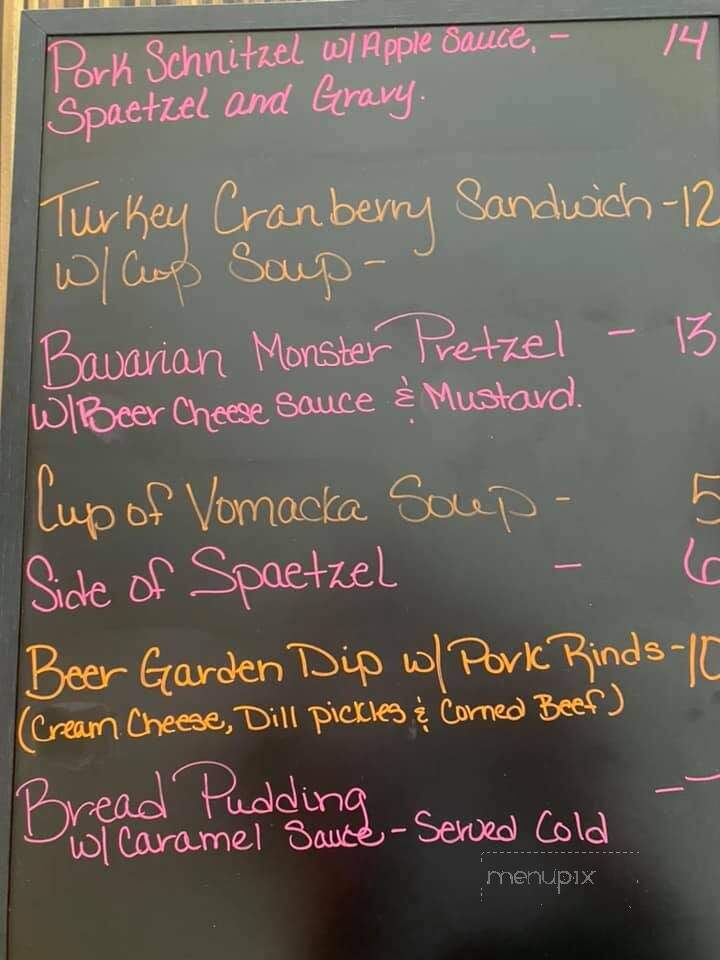 Pork Schnitzel w/ Apple Sauce, - 14
Spaetzel and Gravy.
Turkey Cranberry Sandwich - 12
w/ Cup Soup -
Bavarian Monster Pretzel - 13
w/ Beer Cheese Sauce & Mustard.
Cup of Vomacka Soup - 5
Side of Spaetzel - 6
Beer Garden Dip w/ Pork Rinds - 10
(Cream Cheese, Dill pickles & Corned Beef)
Bread Pudding -
w/ Caramel Sauce - Served Cold
menupix